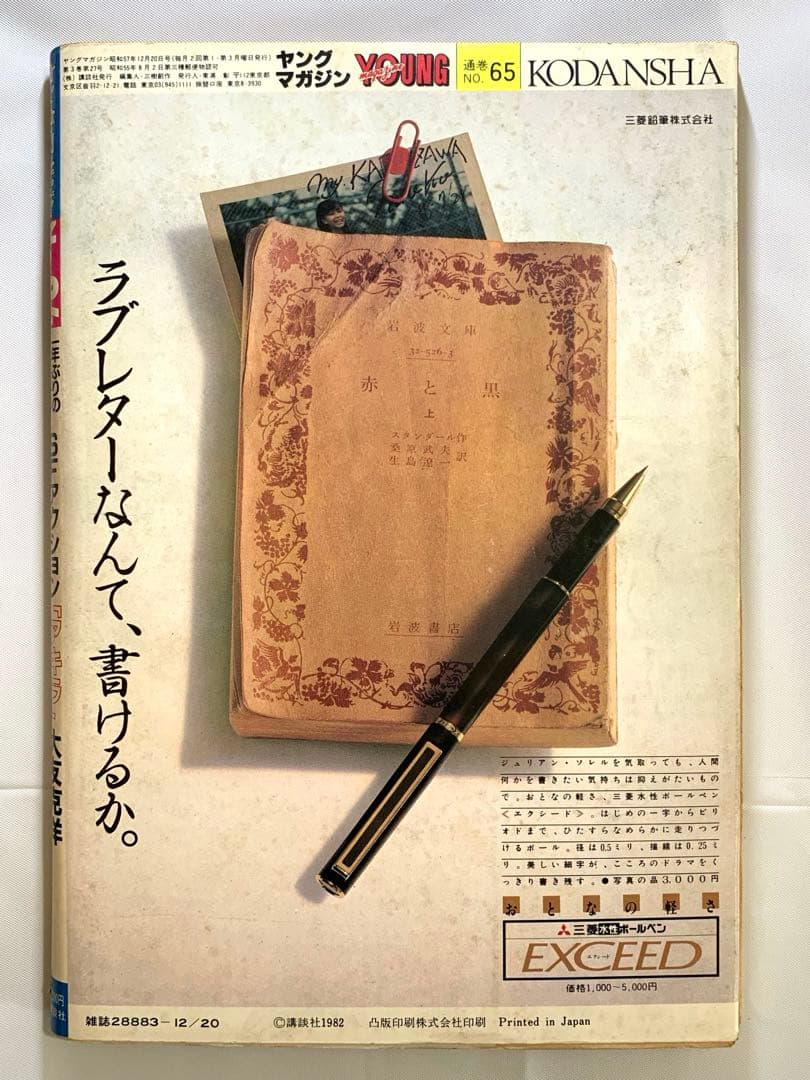 ヤングマガジン昭和57年12月20日号(毎月2回第1・第3月曜日発行)
第3巻第27号 昭和55年8月2日第三種郵便物認可
(株)講談社発行 編集人・三樹創作 発行人・東浦 彰 〒112東京都
文京区音羽2-12-21 電話 東京03(945)1111 振替口座 東京8-3930
ヤング
マガジン
YOUNG
通巻
NO.65
KODANSHA
三菱鉛筆株式会社
my. KARUIZAWA
岩波文庫
32-526-3
赤と黒
上
スタンダール作
桑原武夫
生島遼一訳
岩波書店
ラブレターなんて、書けるか。
一年ぶりの
SFアクション
「アキラ」
大友克洋
ジュリアン・ソレルを気取っても、人間
何かを書きたい気持ちは抑えがたいもの
で。おとなの軽さ、三菱水性ボールペン
《エクシード》。はじめの一字からピリ
オドまで、ひたすらなめらかに走りつづ
けるボール。径は0.5ミリ、描線は0.25ミ
リ。美しい細字が、こころのドラマをく
っきり書き残す。●写真の品3,000円
おとなの軽さ
三菱水性ボールペン
EXCEED
エクシード
価格1,000〜5,000円
雑誌28883-12/20
©講談社1982
凸版印刷株式会社印刷 Printed in Japan